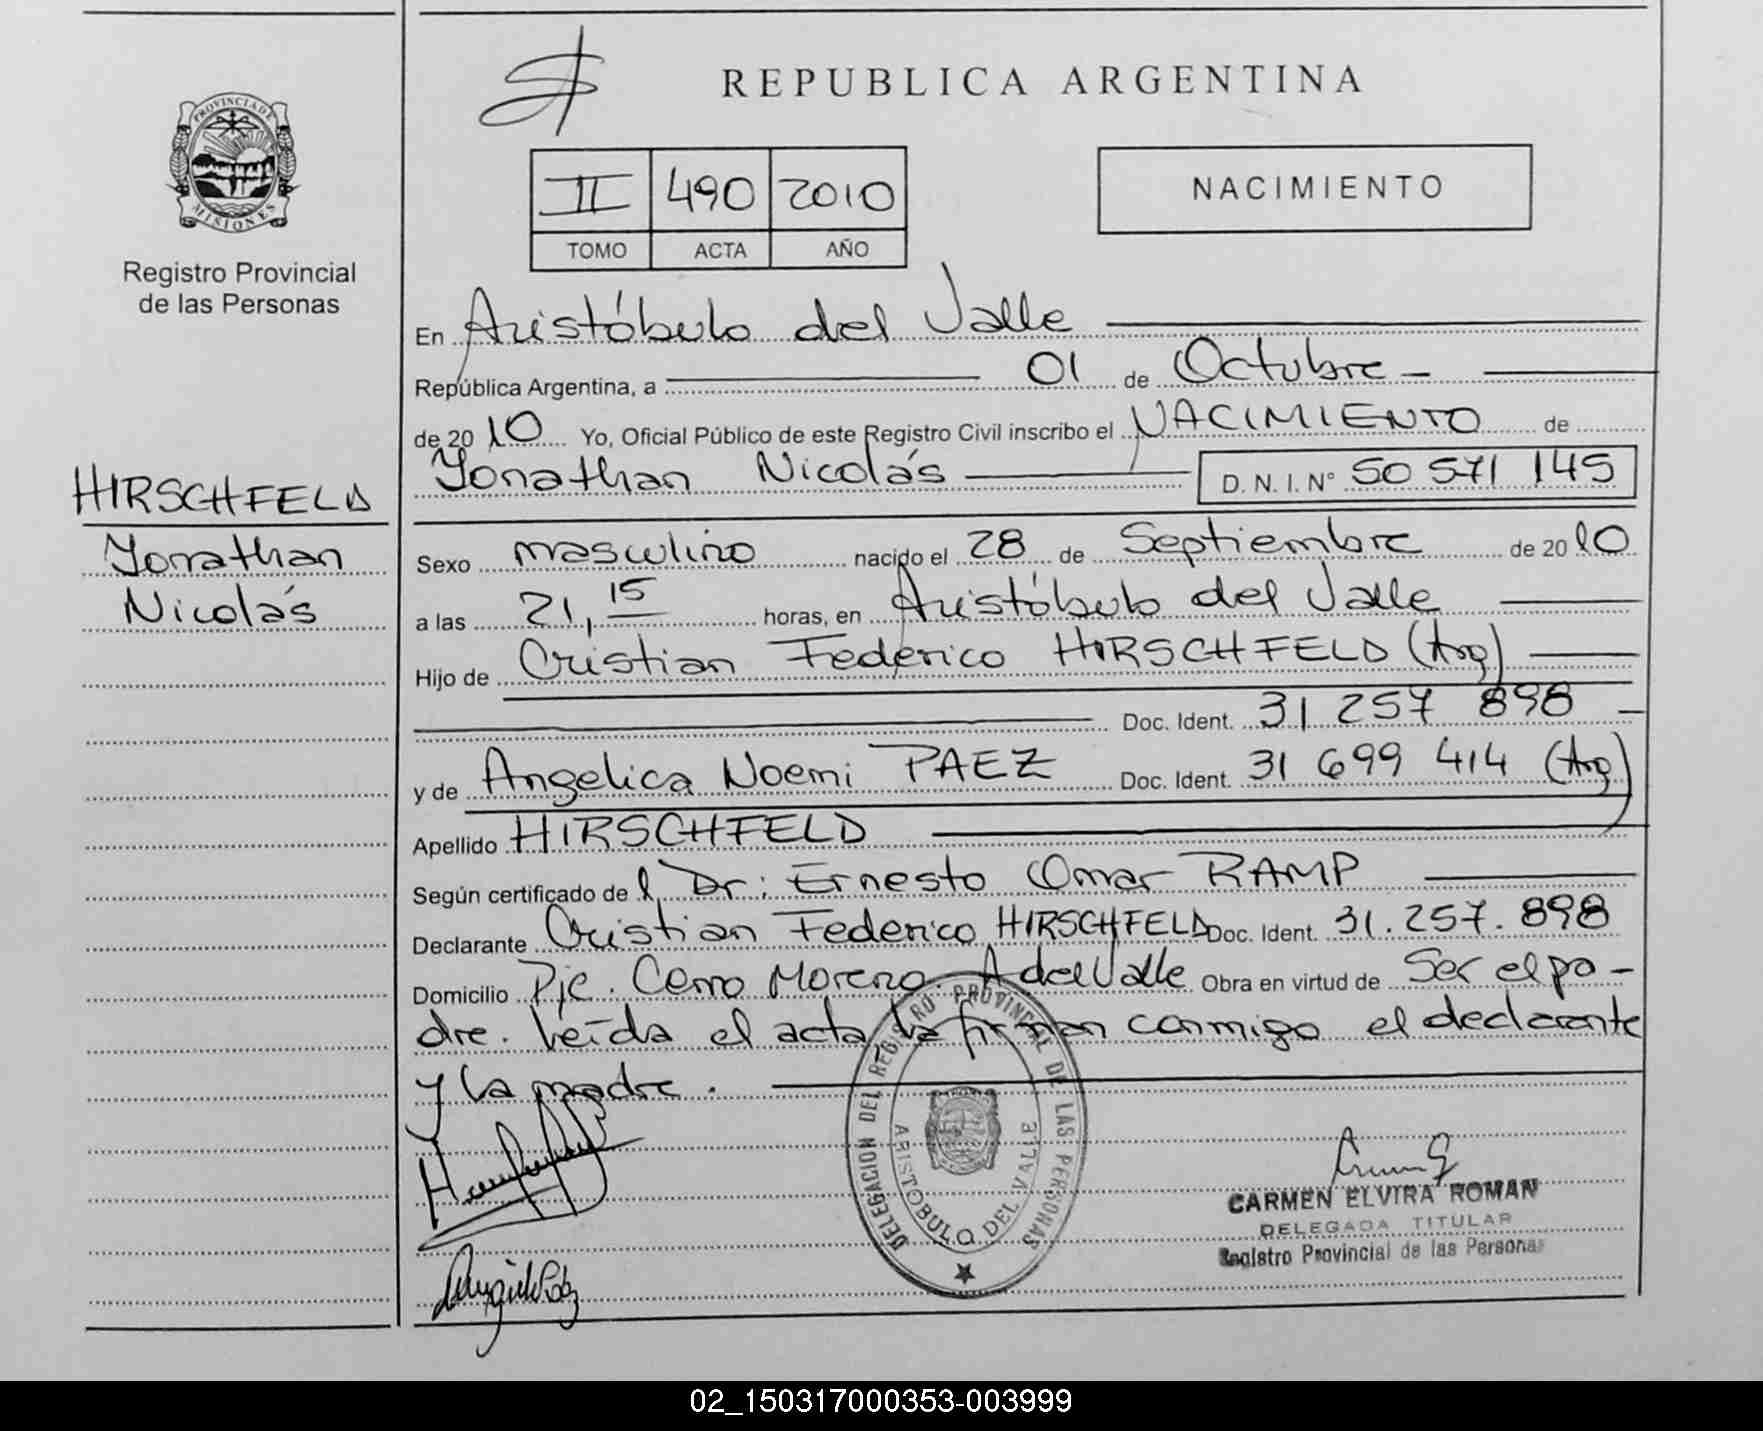 REPUBLICA ARGENTINA
PROVINCIA DE
MISIONES
Registro Provincial
de las Personas
II 490 2010
TOMO ACTA AÑO
NACIMIENTO
En Aristóbulo del Valle
República Argentina, a 01 de Octubre
de 20 10 Yo, Oficial Público de este Registro Civil inscribo el NACIMIENTO de
Yonathan Nicolás D. N. I. N° 50 571 145
HIRSCHFELD
Yonathan
Nicolás
Sexo masculino nacido el 28 de Septiembre de 20 10
a las 21,15 horas, en Aristóbulo del Valle
Hijo de Cristian Federico HIRSCHFELD (Arg)
Doc. Ident. 31 257 898
y de Angelica Noemi PAEZ Doc. Ident. 31 699 414 (Arg)
Apellido HIRSCHFELD
Según certificado de l Dr: Ernesto Omar RAMP
Declarante Cristian Federico HIRSCHFELD Doc. Ident. 31.257.898
Domicilio Pje. Cerro Moreno. A del Valle Obra en virtud de Ser el pa-
dre. Leída el acta la firman conmigo el declarante
y la madre.
DELEGACION DEL REGISTRO PROVINCIAL DE LAS PERSONAS
ARISTOBULO DEL VALLE
CARMEN ELVIRA ROMAN
DELEGADA TITULAR
Registro Provincial de las Personas
02_150317000353-003999